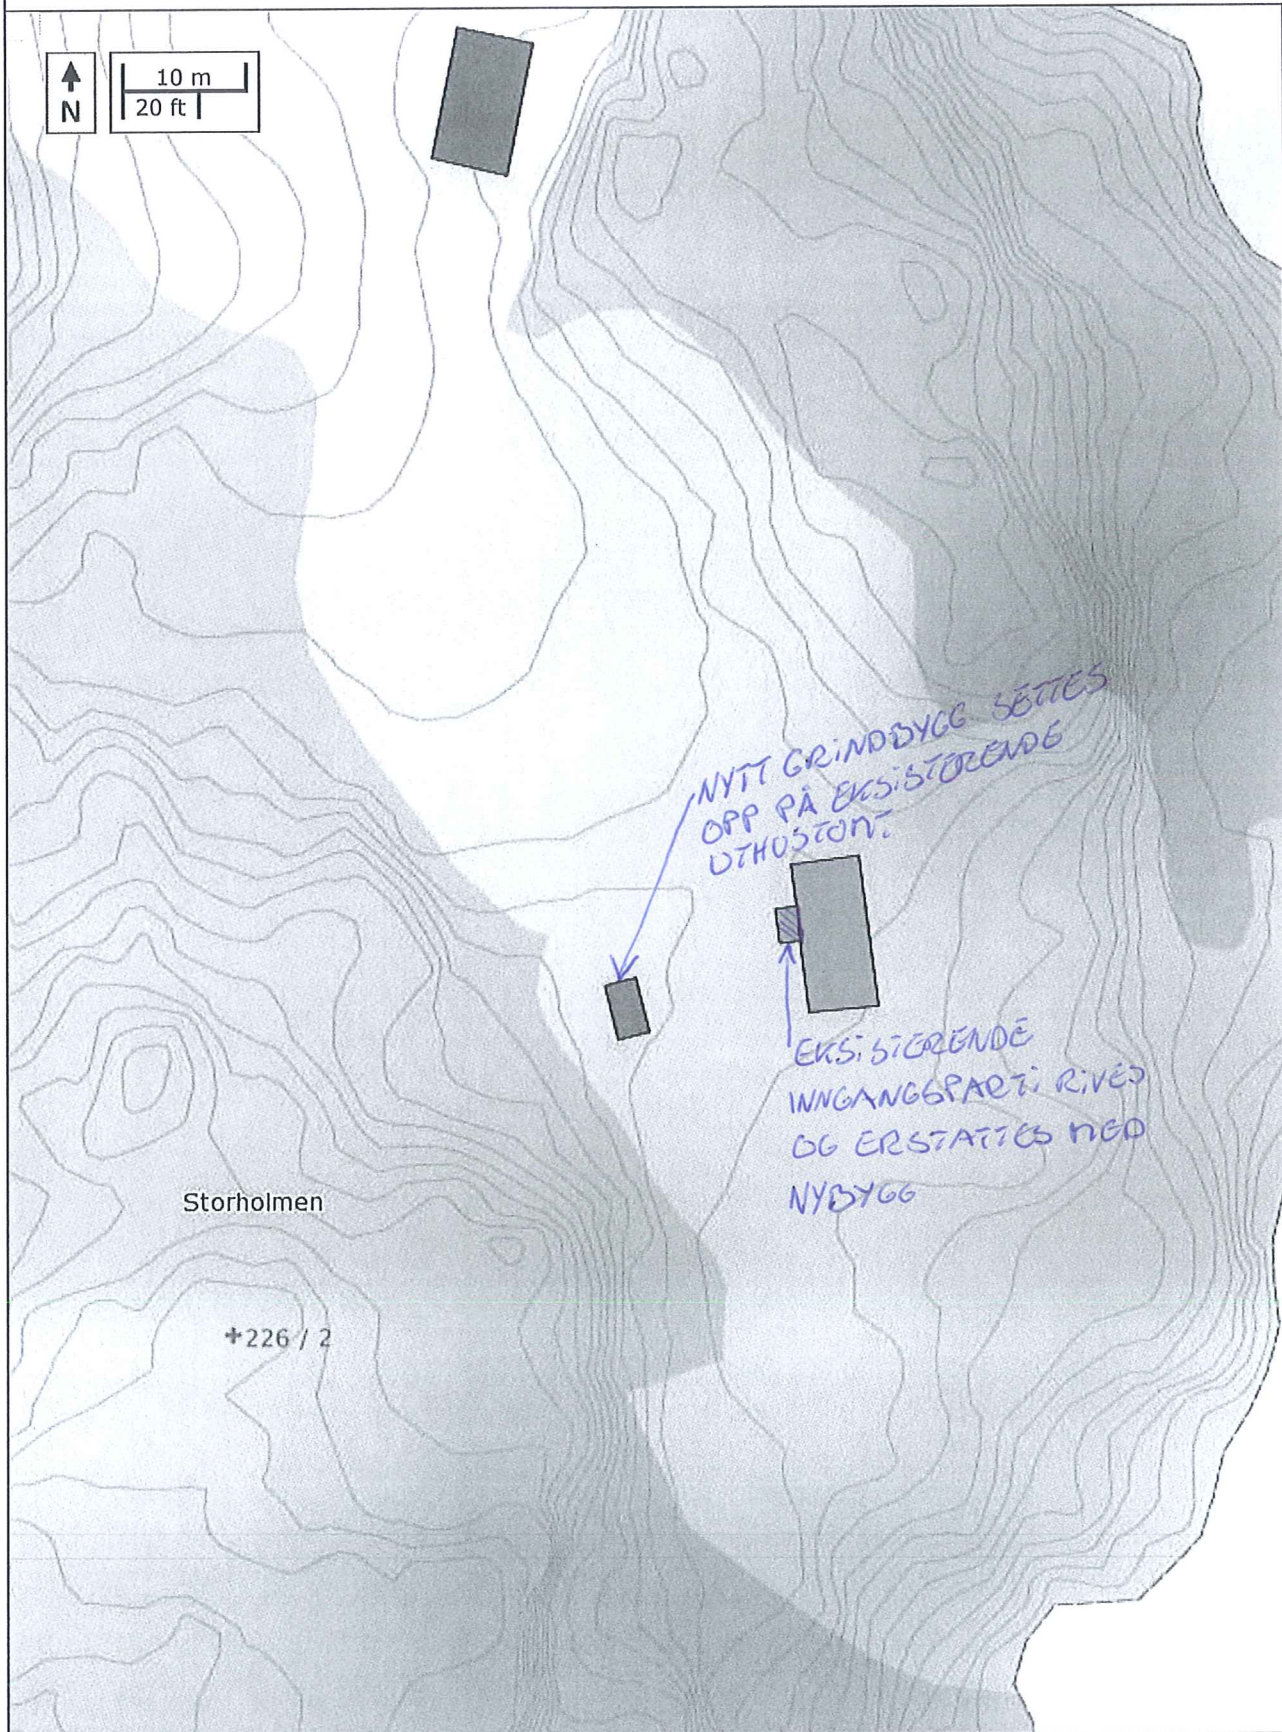 N
10 m
20 ft
NYTT GRINDBYGG SETTES
OPP PÅ EKSISTERENDE
UTHUSTOMT.
EKSISTERENDE
INNGANGSPARTI RIVES
OG ERSTATTES MED
NYBYGG
Storholmen
+226 / 2